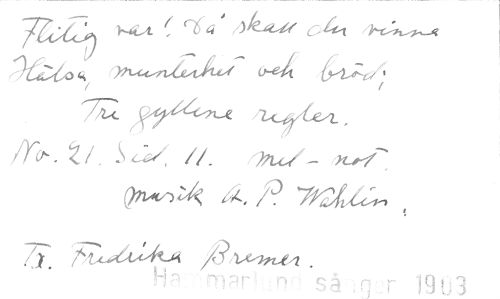 Flitig var! Då skall du vinna
Hälsa, munterhet och bröd;
Tre gyllene regler.
No. 21. Sid. 11. mel-not.
musik A. P. Wahlin.
Tx. Fredrika Bremer.
Hammarlund sånger 1903